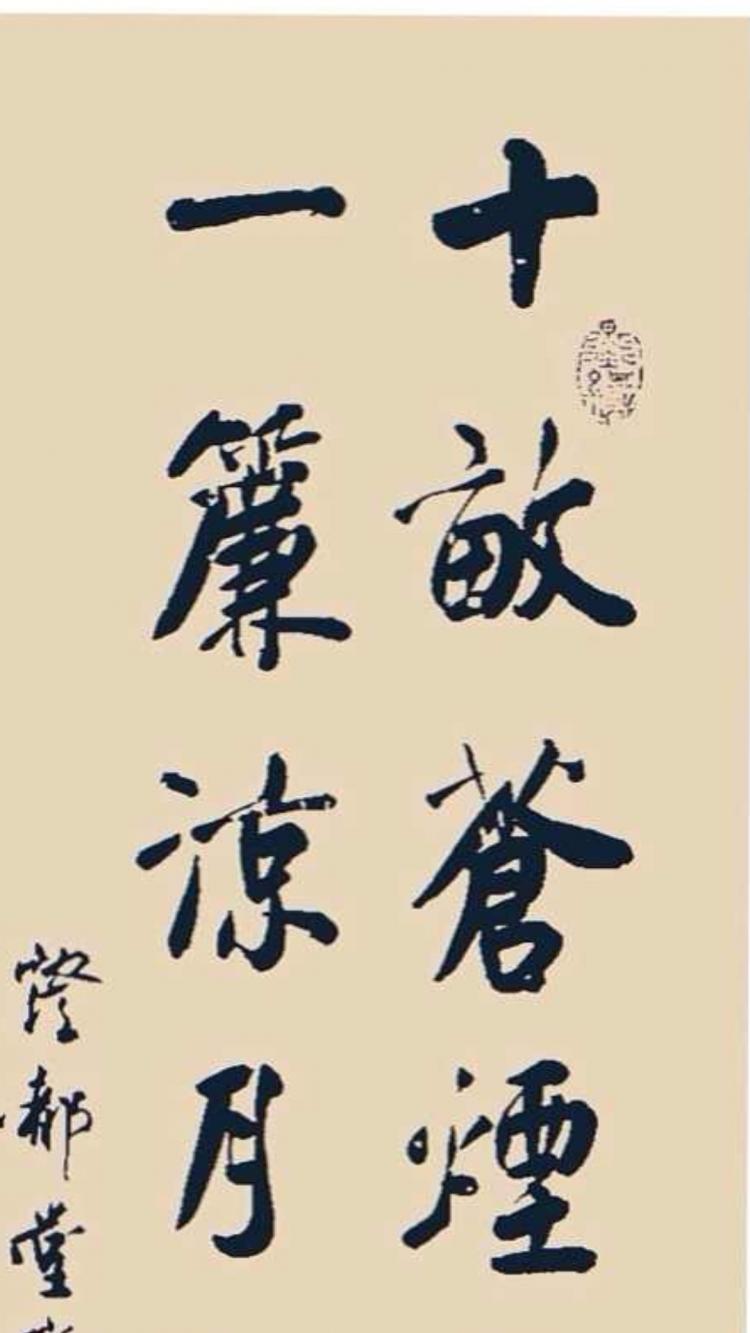 十畝蒼煙
一簾涼月
都堂